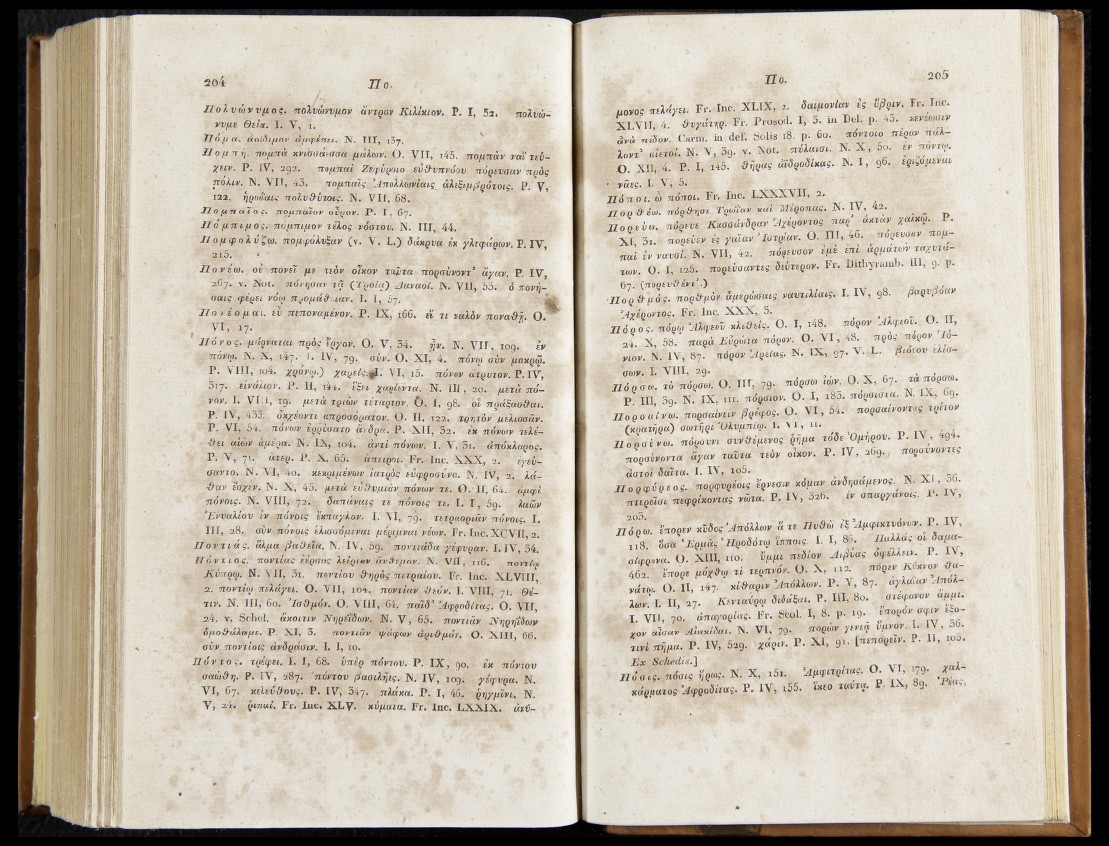 204
Πο.
Πολυώνυμος. πολυώνυμον ἄντρον Κιλίκιον. P. I, 32. πολυώ-
νυμε Θεία. I. V, 1.
Πόμα. ἀοίδιμον ἀμφέπει. N. III, 137.
Πομπή. πομπὰ κνισσάεσσα μάλων. O. VII, 145. πομπὰν ναῒ τεύ-
χειν. P. IV, 292. πομπαὶ Ζεφύροιο εὐθυπνόου πόρευσαν πρὸς
πόλιν. N. VII, 43. πομπαῖς Ἀπολλωνίαις ἀλεξιμβρότοις. P. V,
122. ἡρωΐαις πολυθύτοις. N. VII, 68.
Πομπαῖος. πομπαῖον οὖρον. P. I, 67.
Πόμπιμος. πόμπιμον τέλος νόστου. N. III, 44.
Πομφολύζω. πομφόλυξαν (v. V. L.) δάκρυα ἐκ γλεφάρων. P. IV,
215.
Πονέω. οὐ πονεῖ με τεὸν οἶκον ταῦτα πορσύνοντ' ἄγαν. P. IV,
267. v. Not. πόνησαν τᾷ (Τροίᾳ) Δαναοί. N. VII, 35. ὁ πονή-
σαις φέρει νόῳ προμάθειαν. I. I, 57.
Πονέομαι. εὖ πεποναμένον. P. IX, 166. εἴ τι καλὸν ποναθῇ. O.
VI, 17.
Πόνος. μάρναται πρὸς ἔργον. O. V, 34. ἦν. N. VII, 109. ἐν
πόνῳ. N. X, 147. I. IV, 79. σύν. O. XI, 4. πόνῳ σὺν μακρῷ.
P. VIII, 104. χρόνῳ.) χαρείς. I. VI, 15. πόνον ἄτρυτον. P. IV,
317. εἰνάλιον. P. II, 144. ἕξει χαρίεντα. N. III, 20. μετὰ πό-
νον. I. VII, 19. μετὰ τριῶν τέταρτον. O. I, 98. οἳ πράξασθαι.
P. IV, 433. ὀκχέοντι ἀπροσόρατον. O. II, 122. τρητὸν μελισσᾶν.
P. VI, 54. πόνων ἐῤῥύσατο ἄνδρα. P. XII, 32. ἐκ πόνων τελέ-
θει αἰὼν ἁμέρα. N. IX, 104. ἀντὶ πόνων. I. V, 31. ἀπόκλαρος.
P. V, 71. ἄτερ. P. X, 65. ἄπειροι. Fr. Inc. XXX, 2. ἐγεύ-
σαντο. N. VI, 40. κεκριμένων ἰατρὸς εὐφροσύνα. N. IV, 2. λά-
θαν ἔσχεν. N. X, 45. μετὰ εὐθυμιᾶν πόνων τε. O. II, 64. ἀμφὶ
πόνοις. N. VIII, 72. δαπάναις τε πόνοις τε. I. I, 59. λαῶν
Ἐνυαλίου ἐν πόνοις ἔκπαγλον. I. VI, 79. τετραοριᾶν πόνοις. I.
III, 28. σὺν πόνοις ἑλισσόμεναι μέριμναι νέων. Fr. Inc. XCVII, 2.
Ποντιάς. ἅλμα βαθεῖα. N. IV, 59. ποντιάδα γέφυραν. I. IV, 34.
Πόντιος. ποντίας ἐέρσας λείριον ἄνθεμον. N. VII, 116. ποντίᾳ
Κύπρῳ. N. VII, 31. ποντίου θηρὸς πετραίου. Fr. Inc. XLVIII,
2. ποντίῳ πελάγει. O. VII, 104. ποντίαν θεόν. I. VIII, 71. Θέ-
τιν. N. III, 60. Ἰσθμόν. O. VIII, 64. παῖδ' Ἀφροδίτας. O. VII,
24. v. Schol. ἄκοιτιν Νηρεΐδων. N. V, 65. ποντιᾶν Νηρηΐδων
ὁμοθάλαμε. P. XI, 3. ποντιᾶν ψάφων ἀριθμόν. O. XIII, 66.
σὺν ποντίοις ἀνδράσιν. I. I, 10.
Πόντος. τρέφει. I. I, 68. ὑπὲρ πόντου. P. IX, 90. ἐκ πόντου
σαώθη. P. IV, 287. πόντου βασιλῆες. N. IV, 109. γέφυρα. N.
VI, 67. κελεύθους. P. IV, 347. πλάκα. P. I, 46. ῥηγμῖνι. N.
V, 24. ῥιπαί. Fr. Inc. XLV. κύματα. Fr. Inc. LXXIX. ἀκύ-
Πο.
205
μονος πελάγει. Fr. Inc. XLIX, 2. δαιμονίαν ἐς ὕβριν. Fr. Inc.
XLVII, 4. θυγάτηρ. Fr. Prosod. I, 3. in Del. p. 43. κενέωσιν
ἀνὰ πέδον. Carm. in def. Solis 18. p. 60. πόντοιο πέραν πάλ-
λοντ' αἰετοί. N. V, 39. v. Not. πύλαισι. N. X, 50. ἐν πόντῳ.
O. XII, 4. P. I, 145. θῆρας ἀϊδροδίκας. N. I, 96. ἐριζόμεναι
νᾶες. I. V, 5.
Πόποι. ὢ πόποι. Fr. Inc. LXXXVII, 2.
Πορθέω. πόρθησε Τρωΐαν καὶ Μέροπας. N. IV, 42.
Πορεύω. πόρευε Κασσάνδραν Ἀχέροντος παρ' ἀκτὰν χαλκῷ. P.
XI, 31. πορεύεν ἐς γαῖαν Ἰστρίαν. O. III, 46. πόρευσαν πομ-
παὶ ἐν ναυσί. N. VII, 42. πόρευσον ἐμὲ ἐπὶ ἁρμάτων ταχυτά-
των. O. I, 125. πορεύσαντες δεύτερον. Fr. Dithyramb. III, 9. p.
67. (πορευθέντ'.)
Πορθμός. πορθμὸν ἁμερώσαις ναυτιλίαις. I. IV, 98. βαρυβόαν
Ἀχέροντος. Fr. Inc. XXX, 3.
Πόρος. πόρῳ Ἀλφεοῦ κλιθείς. O. I, 148. πόρον Ἀλφεοῦ. O. II,
24. X, 58. παρὰ Εὐρώτα πόρον. O. VI, 48. πρὸς πόρον Ἰό-
νιον. N. IV, 87. πόρον Ἀρείας. N. IX, 97. V. L. βιότου ἑλίσ-
σων. I. VIII, 29.
Πόρσω. τὸ πόρσω. O. III, 79. πόρσω ἰών. O. X, 67. τὰ πόρσω.
P. III, 39. N. IX, 111. πόρσιον. O. I, 183. πόρσιστα. N. IX, 69.
Πορσαίνω. πορσαίνειν βρέφος. O. VI, 54. πορσαίνοντας τρίτον
(κρατῆρα) σωτῆρι Ὀλυμπίῳ. I. VI, 11.
Πορσύνω. πόρσυνε συνθέμενος ῥῆμα τόδε Ὁμήρου. P. IV, 494.
πορσύνοντα ἄγαν ταῦτα τεὸν οἶκον. P. IV, 269. πορσύνοντες
ἀστοὶ δαῖτα. I. IV, 105.
Πορφύρεος. πορφυρέοις ἔρνεσιν κόμαν ἀνδησάμενος. N. XI, 36.
πτεροῖσι πεφρίκοντας νῶτα. P. IV, 326. ἐν σπαργάνοις. P. IV,
203.
Πόρω. ἔπορεν κῦδος Ἀπόλλων ἅ τε Πυθῶϊ ἐξ Ἀμφικτυόνων. P. IV,
118. ὅσα Ἑρμᾶς Ἡροδότῳ ἵπποις. I. I, 85. Παλλάς οἱ δαμα-
σίφρονα. O. XIII, 110. ὔμμι πεδίον Λιβύας ὀφέλλειν. P. IV,
462. ἔπορε μόχθῳ τι τερπνόν. O. X, 112. πόρεν Κύκνον θα-
νάτῳ. O. II, 147. κίθαριν Ἀπόλλων. P. V, 87. ἀγλαΐαν Ἀπόλ-
λων. I. II, 27. Κενταύρῳ διδάξαι. P. III, 80. στέφανον ἄμμι.
I. VII, 70. ἀπαγορίας. Fr. Scol. I, 8. p. 19. ἐπορόν σφιν ἔξο-
χον αἶσαν Αἰακίδαι. N. VI, 79. πορὼν γενεᾷ ὕμνον. I. IV, 36.
τινὶ πῆμα. P. IV, 529. χάριν. P. XI, 91. [πεπορεῖν. P. II, 105.
Ex Schedis.]
Πόσις. πόσις ἥρως. N. X, 151. Ἀμφιτρίτας. O. VI, 179. χαλ-
κάρματος Ἀφροδίτας. P. IV, 155. ἵκεο ταύτᾳ. P. IX, 89. Ῥέας,